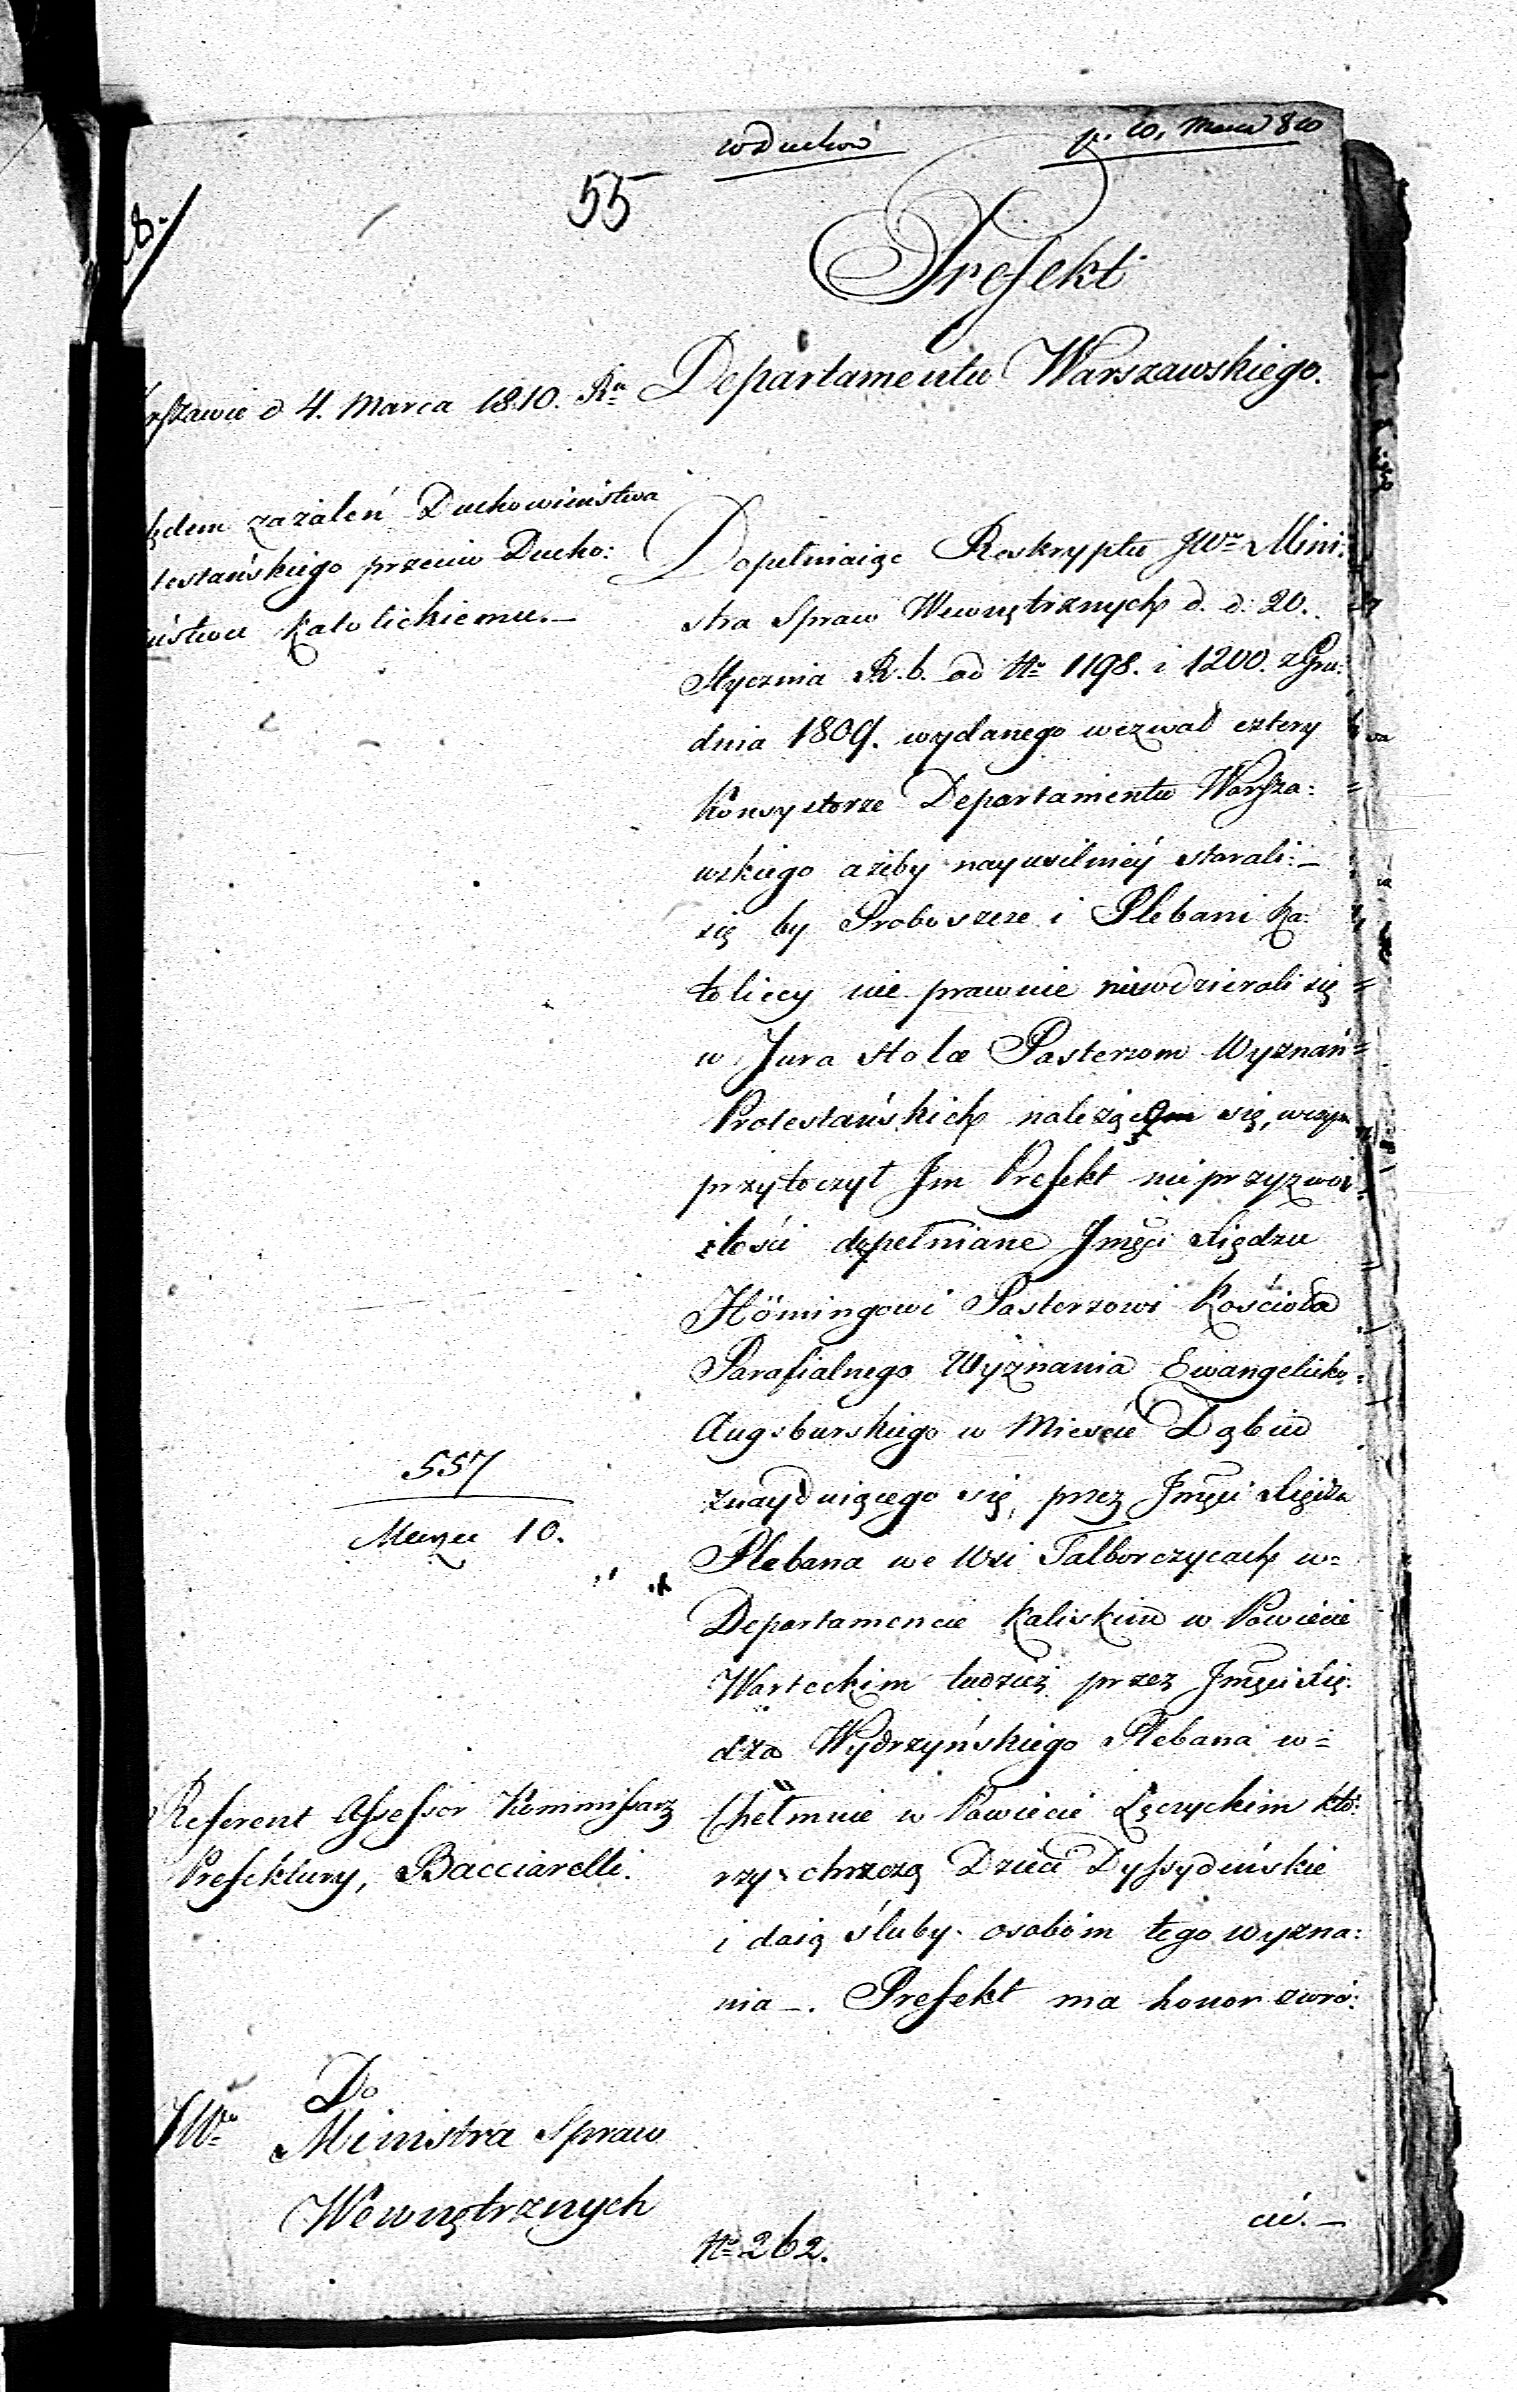 wDuchow
pr. 10. Marca 810
55
8.
Prefekt
Departamentu Warszawskiego.
rszawie d 4. Marca 1810. Rn
ędem zażaleń Duchowieństwa
testańskiego przeciw Ducho:
ństwu Katolickiemu.—
Dopełniaiąc Reskryptu JWo Mini:
stra Spraw Wewnętrznych d. d. 20.
Stycznia R. b. ad No 1198. i 1200. z Gru:
dnia 1809. wydanego wezwał cztery
Konsystorze Departamentu Warsza:
wskiego ażeby nayusilniéy starali:—
się by Proboszcze i Plebani Ka:
toliccy nie prawnie niewdzierali się
w Jura Stolæ Pasterzom Wyznań
Protestańskich należące się, wczym
przytoczył Jm Prefekt nieprzyzwoi:
itości dopełniane Jmęci Xiędzu
Hömingowi Pasterzowi Kościoła
Parafialnego Wyznania Ewangelicko:
Augsburskiego w Mieście Dąbiu
znayduiącego się, przez Jmęci Xiędza
Plebana we Wsi Talborczycach w=
Departamencie Kaliskim w Powiecie
Warteckim tudzież przez Jmęci Xię:
dza Wydrzyńskiego Plebana w=
Chełmnie w Powiecie Łęczyckim któ:
rzy chrzczą Dzieci Dyssydeńskie
i daią śluby osobom tego wyzna:
nia—. Prefekt ma honor zwró:
cić.—
557
Marca 10.
Referent Assessor Kommissarz
Prefektury, Bacciarelli.
Do
JWo Ministra Spraw
Wewnętrznych
No 262.